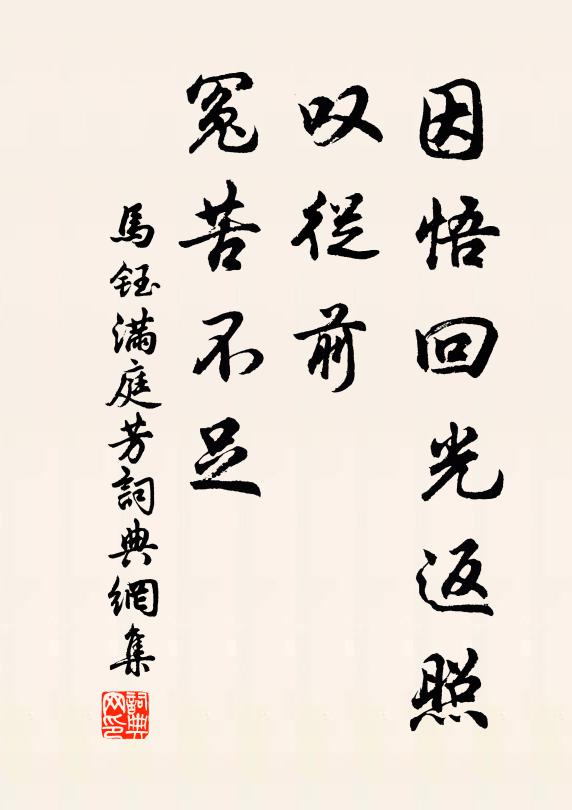 因悟回光返照
叹從前
冤苦不足
馬鈺滿庭芳詞典網集
詞典网印